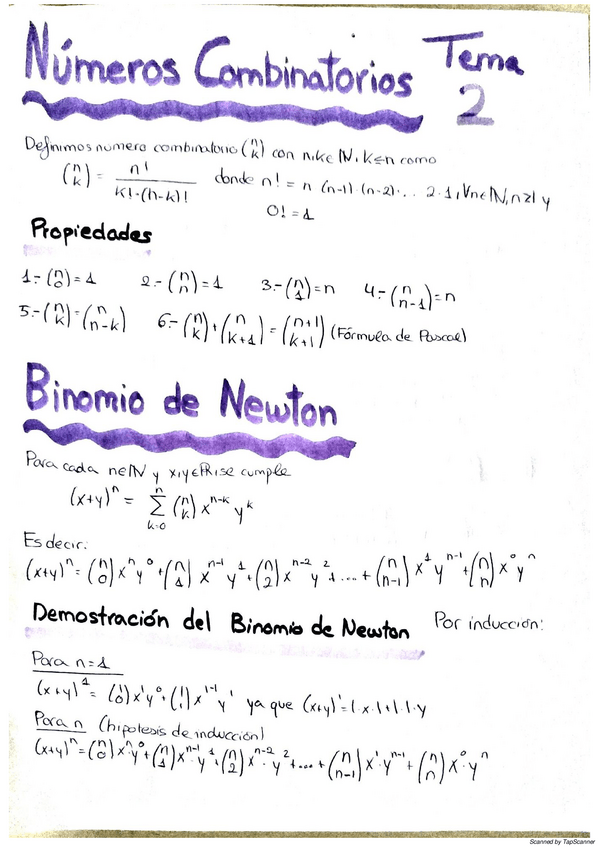 Números Combinatorios Tema 2
Definimos numero combinatorio (n k) con n,k∈ℕ, k≤n como
(n k) = n! / k!·(n-k)! donde n! = n (n-1)·(n-2)·... 2·1, ∀n∈ℕ, n≥1 y
0! = 1
Propiedades
1.- (n 0) = 1 2.- (n n) = 1 3.- (n 1) = n 4.- (n n-1) = n
5.- (n k) = (n n-k) 6.- (n k) + (n k+1) = (n+1 k+1) (Fórmula de Pascal)
Binomio de Newton
Para cada n∈ℕ y x,y∈ℝ, se cumple
(x+y)^n = Σ_{k=0}^{n} (n k) x^{n-k} y^k
Es decir:
(x+y)^n = (n 0) x^n y^0 + (n 1) x^{n-1} y^1 + (n 2) x^{n-2} y^2 + .... + (n n-1) x^1 y^{n-1} + (n n) x^0 y^n
Demostración del Binomio de Newton Por inducción:
Para n=1
(x+y)^1 = (1 0) x^1 y^0 + (1 1) x^{1-1} y^1 ya que (x+y)^1 = 1·x·1+1·1·y
Para n (hipotesis de inducción)
(x+y)^n = (n 0) x^n·y^0 + (n 1) x^{n-1}·y^1 + (n 2) x^{n-2}·y^2 + .... + (n n-1) x^1·y^{n-1} + (n n) x^0·y^n
Scanned by TapScanner